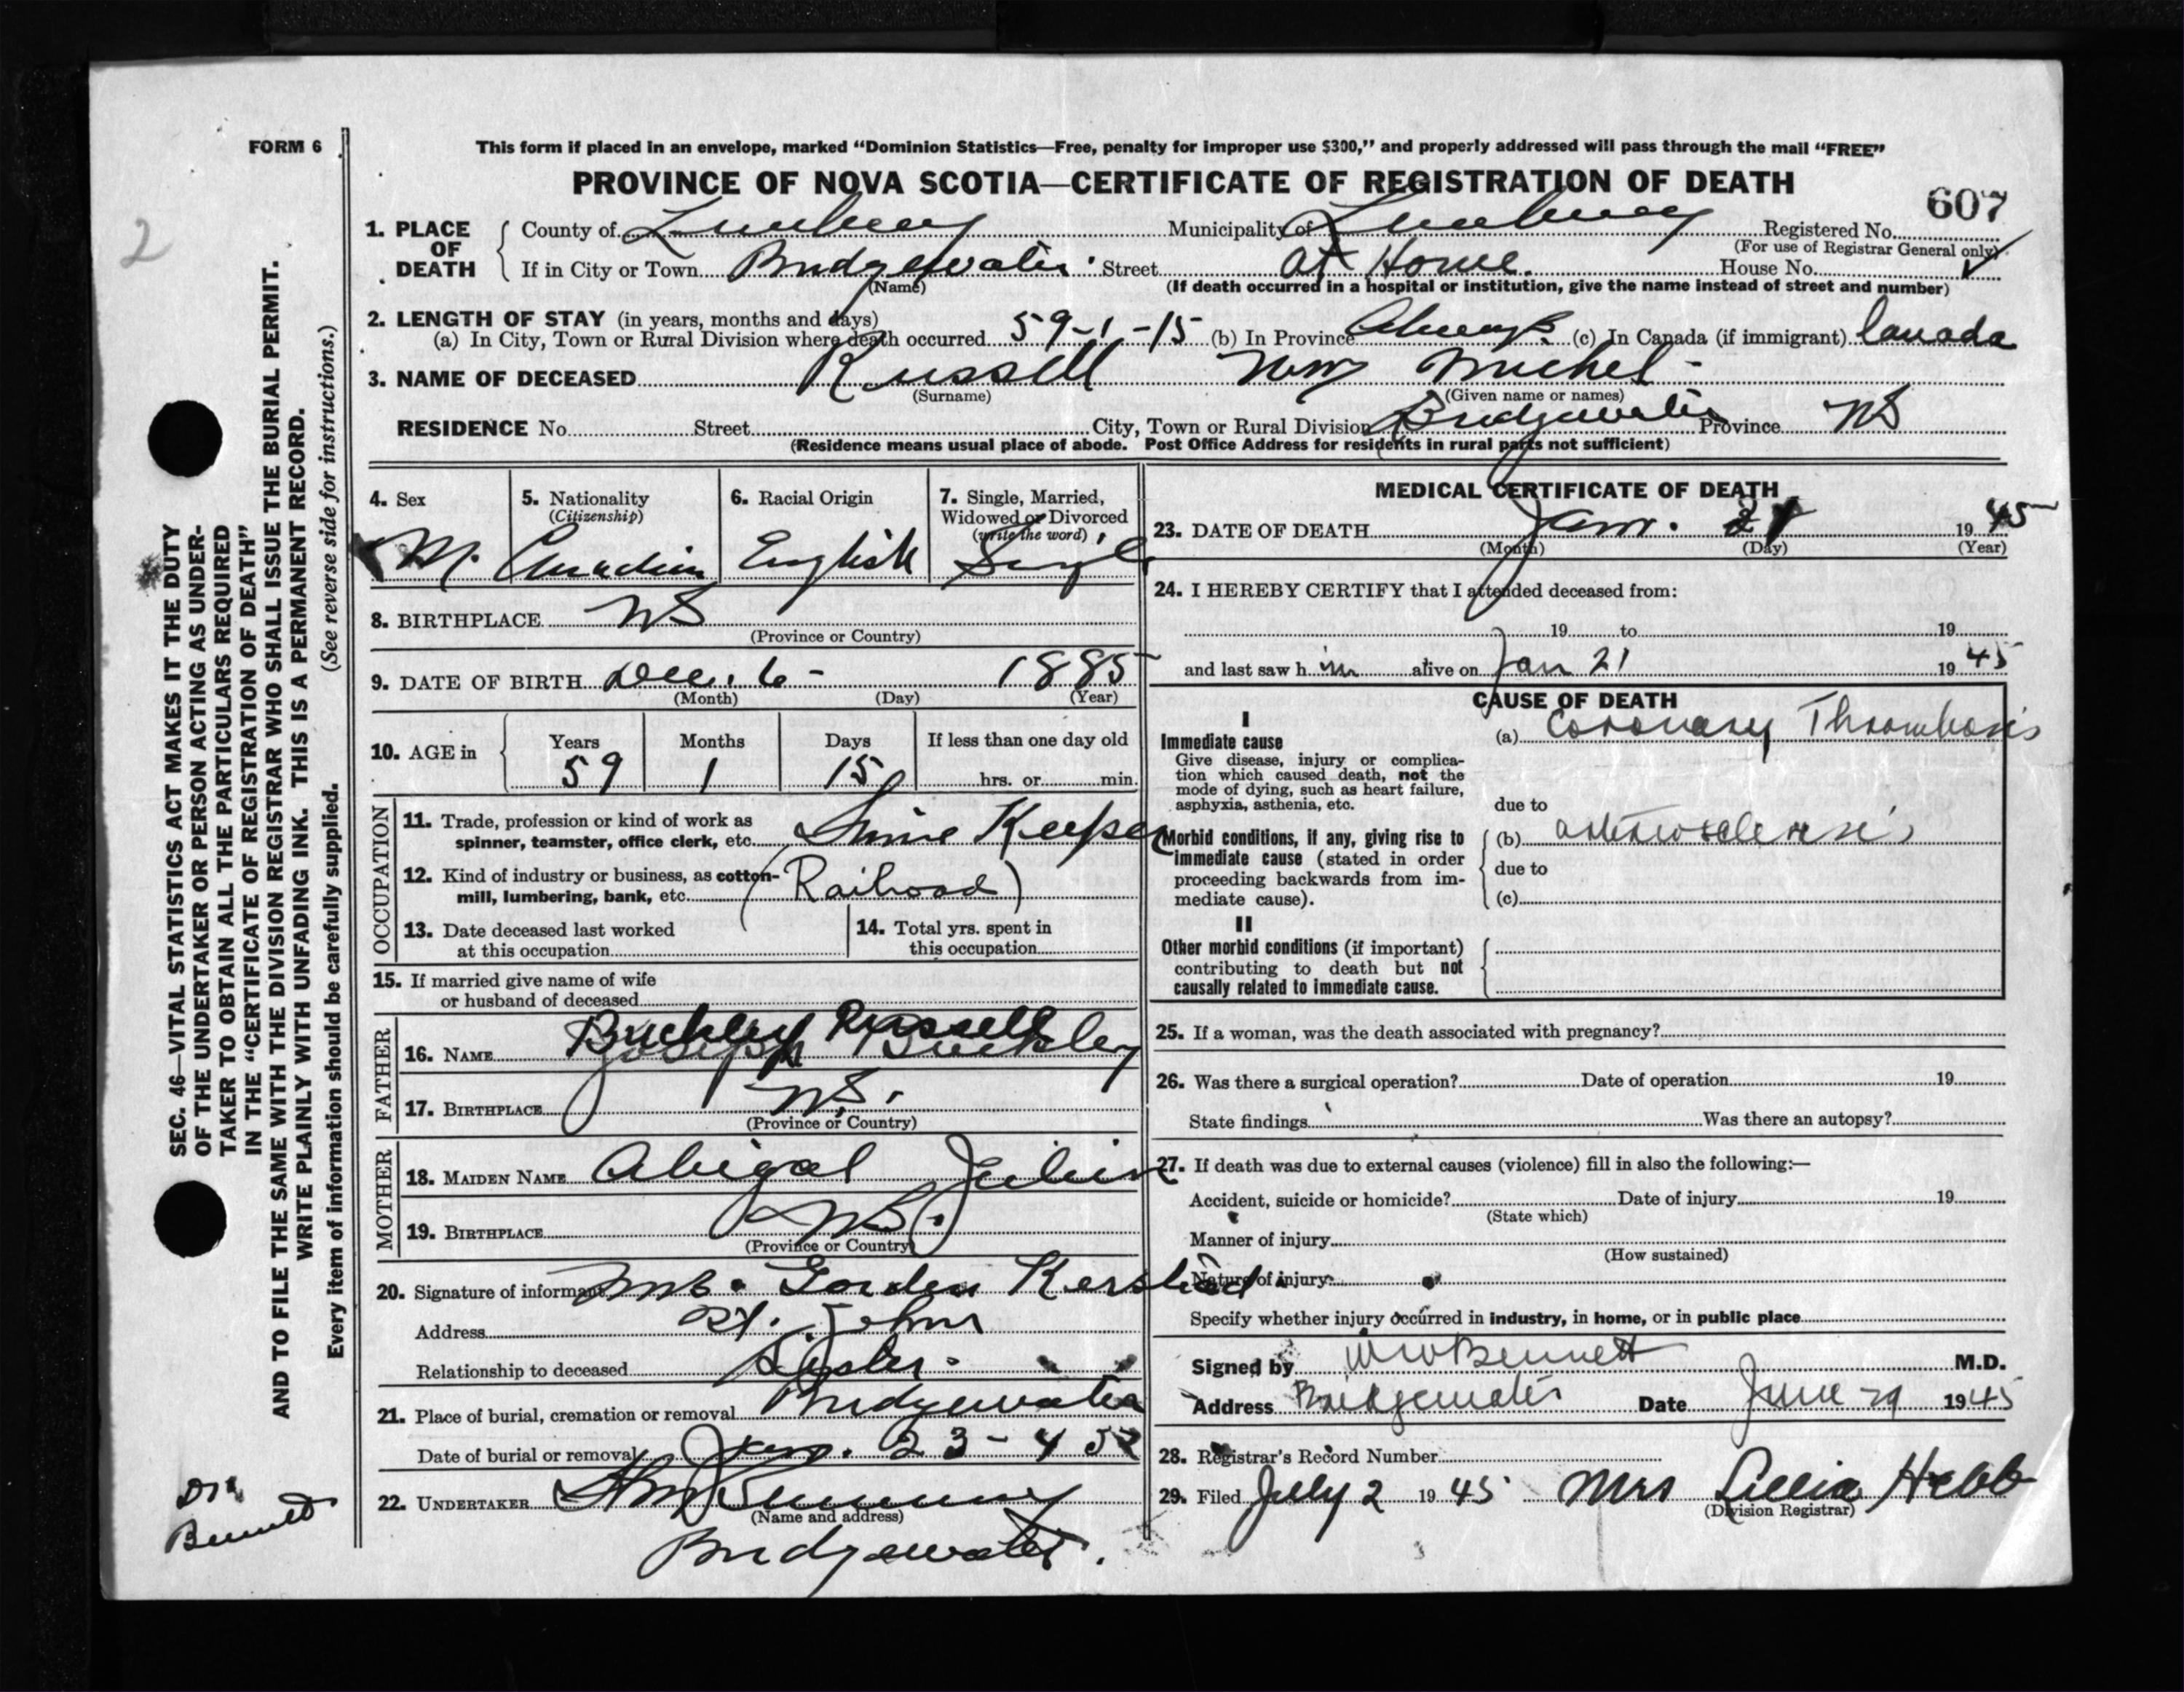 FORM 6
This form if placed in an envelope, marked "Dominion Statistics—Free, penalty for improper use $300," and properly addressed will pass through the mail "FREE"
PROVINCE OF NOVA SCOTIA—CERTIFICATE OF REGISTRATION OF DEATH
607
2
SEC. 46—VITAL STATISTICS ACT MAKES IT THE DUTY
OF THE UNDERTAKER OR PERSON ACTING AS UNDER-
TAKER TO OBTAIN ALL THE PARTICULARS REQUIRED
IN THE "CERTIFICATE OF REGISTRATION OF DEATH"
AND TO FILE THE SAME WITH THE DIVISION REGISTRAR WHO SHALL ISSUE THE BURIAL PERMIT.
WRITE PLAINLY WITH UNFADING INK. THIS IS A PERMANENT RECORD.
Every item of information should be carefully supplied. (See reverse side for instructions.)
1. PLACE OF DEATH
County of Lunenburg Municipality of Lunenburg Registered No.
(For use of Registrar General only)
If in City or Town Bridgewater Street at Home. House No.
(Name) (If death occurred in a hospital or institution, give the name instead of street and number)
2. LENGTH OF STAY (in years, months and days)
(a) In City, Town or Rural Division where death occurred 59-1-15 (b) In Province Always. (c) In Canada (if immigrant) Canada
3. NAME OF DECEASED Russell Wm Michel
(Surname) (Given name or names)
RESIDENCE No. Street City, Town or Rural Division Bridgewater Province NS
(Residence means usual place of abode. Post Office Address for residents in rural parts not sufficient)
4. Sex
M.
5. Nationality
(Citizenship)
Canadian
6. Racial Origin
English
7. Single, Married,
Widowed or Divorced
(write the word)
Single
8. BIRTHPLACE NS
(Province or Country)
9. DATE OF BIRTH Dec. 6 - 1885
(Month) (Day) (Year)
10. AGE in
Years Months Days If less than one day old
59 1 15 hrs. or min.
OCCUPATION
11. Trade, profession or kind of work as
spinner, teamster, office clerk, etc. Time Keeper
12. Kind of industry or business, as cotton-
mill, lumbering, bank, etc. (Railroad)
13. Date deceased last worked
at this occupation
14. Total yrs. spent in
this occupation
15. If married give name of wife
or husband of deceased
FATHER
Buckley Russell
16. NAME Joseph Buckley
17. BIRTHPLACE NS.
(Province or Country)
MOTHER
18. MAIDEN NAME Abigal
19. BIRTHPLACE NS.
(Province or Country)
20. Signature of informant Mrs. Gorden
Address St. Johns
Relationship to deceased Sister.
21. Place of burial, cremation or removal Bridgewater
Date of burial or removal Jan. 23-45
22. UNDERTAKER
(Name and address)
Bridgewater.
Dr
Bennett
MEDICAL CERTIFICATE OF DEATH
23. DATE OF DEATH Jan. 21 1945
(Month) (Day) (Year)
24. I HEREBY CERTIFY that I attended deceased from:
19 to 19
and last saw him alive on Jan 21 1945
CAUSE OF DEATH
I
Immediate cause
Give disease, injury or complica-
tion which caused death, not the
mode of dying, such as heart failure,
asphyxia, asthenia, etc.
(a) Coronary Thrombosis
due to
Morbid conditions, if any, giving rise to
immediate cause (stated in order
proceeding backwards from im-
mediate cause).
(b) arteriosclerosis
due to
(c)
II
Other morbid conditions (if important)
contributing to death but not
causally related to immediate cause.
25. If a woman, was the death associated with pregnancy?
26. Was there a surgical operation? Date of operation 19
State findings Was there an autopsy?
27. If death was due to external causes (violence) fill in also the following:—
Accident, suicide or homicide? Date of injury 19
(State which)
Manner of injury
(How sustained)
Nature of injury
Specify whether injury occurred in industry, in home, or in public place
Signed by W W Bennett M.D.
Address Bridgewater Date June 29 1945
28. Registrar's Record Number
29. Filed July 2 1945 Mrs Lillia Hebb
(Division Registrar)